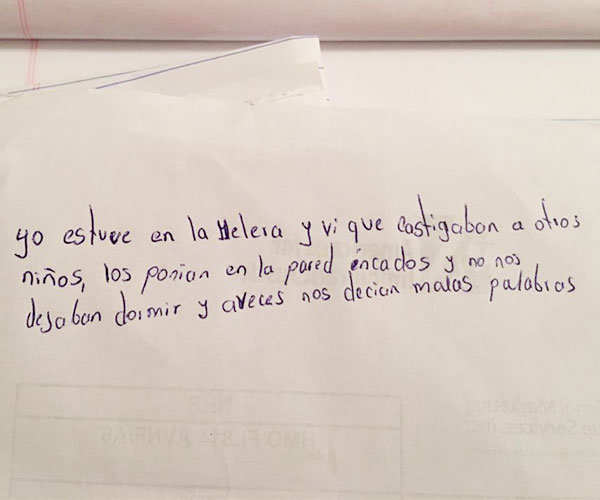 yo estuve en la Helera y vi que castigaban a otros
niños, los ponian en la pared incados y no nos
dejaban dormir y aveces nos decian malas palabras